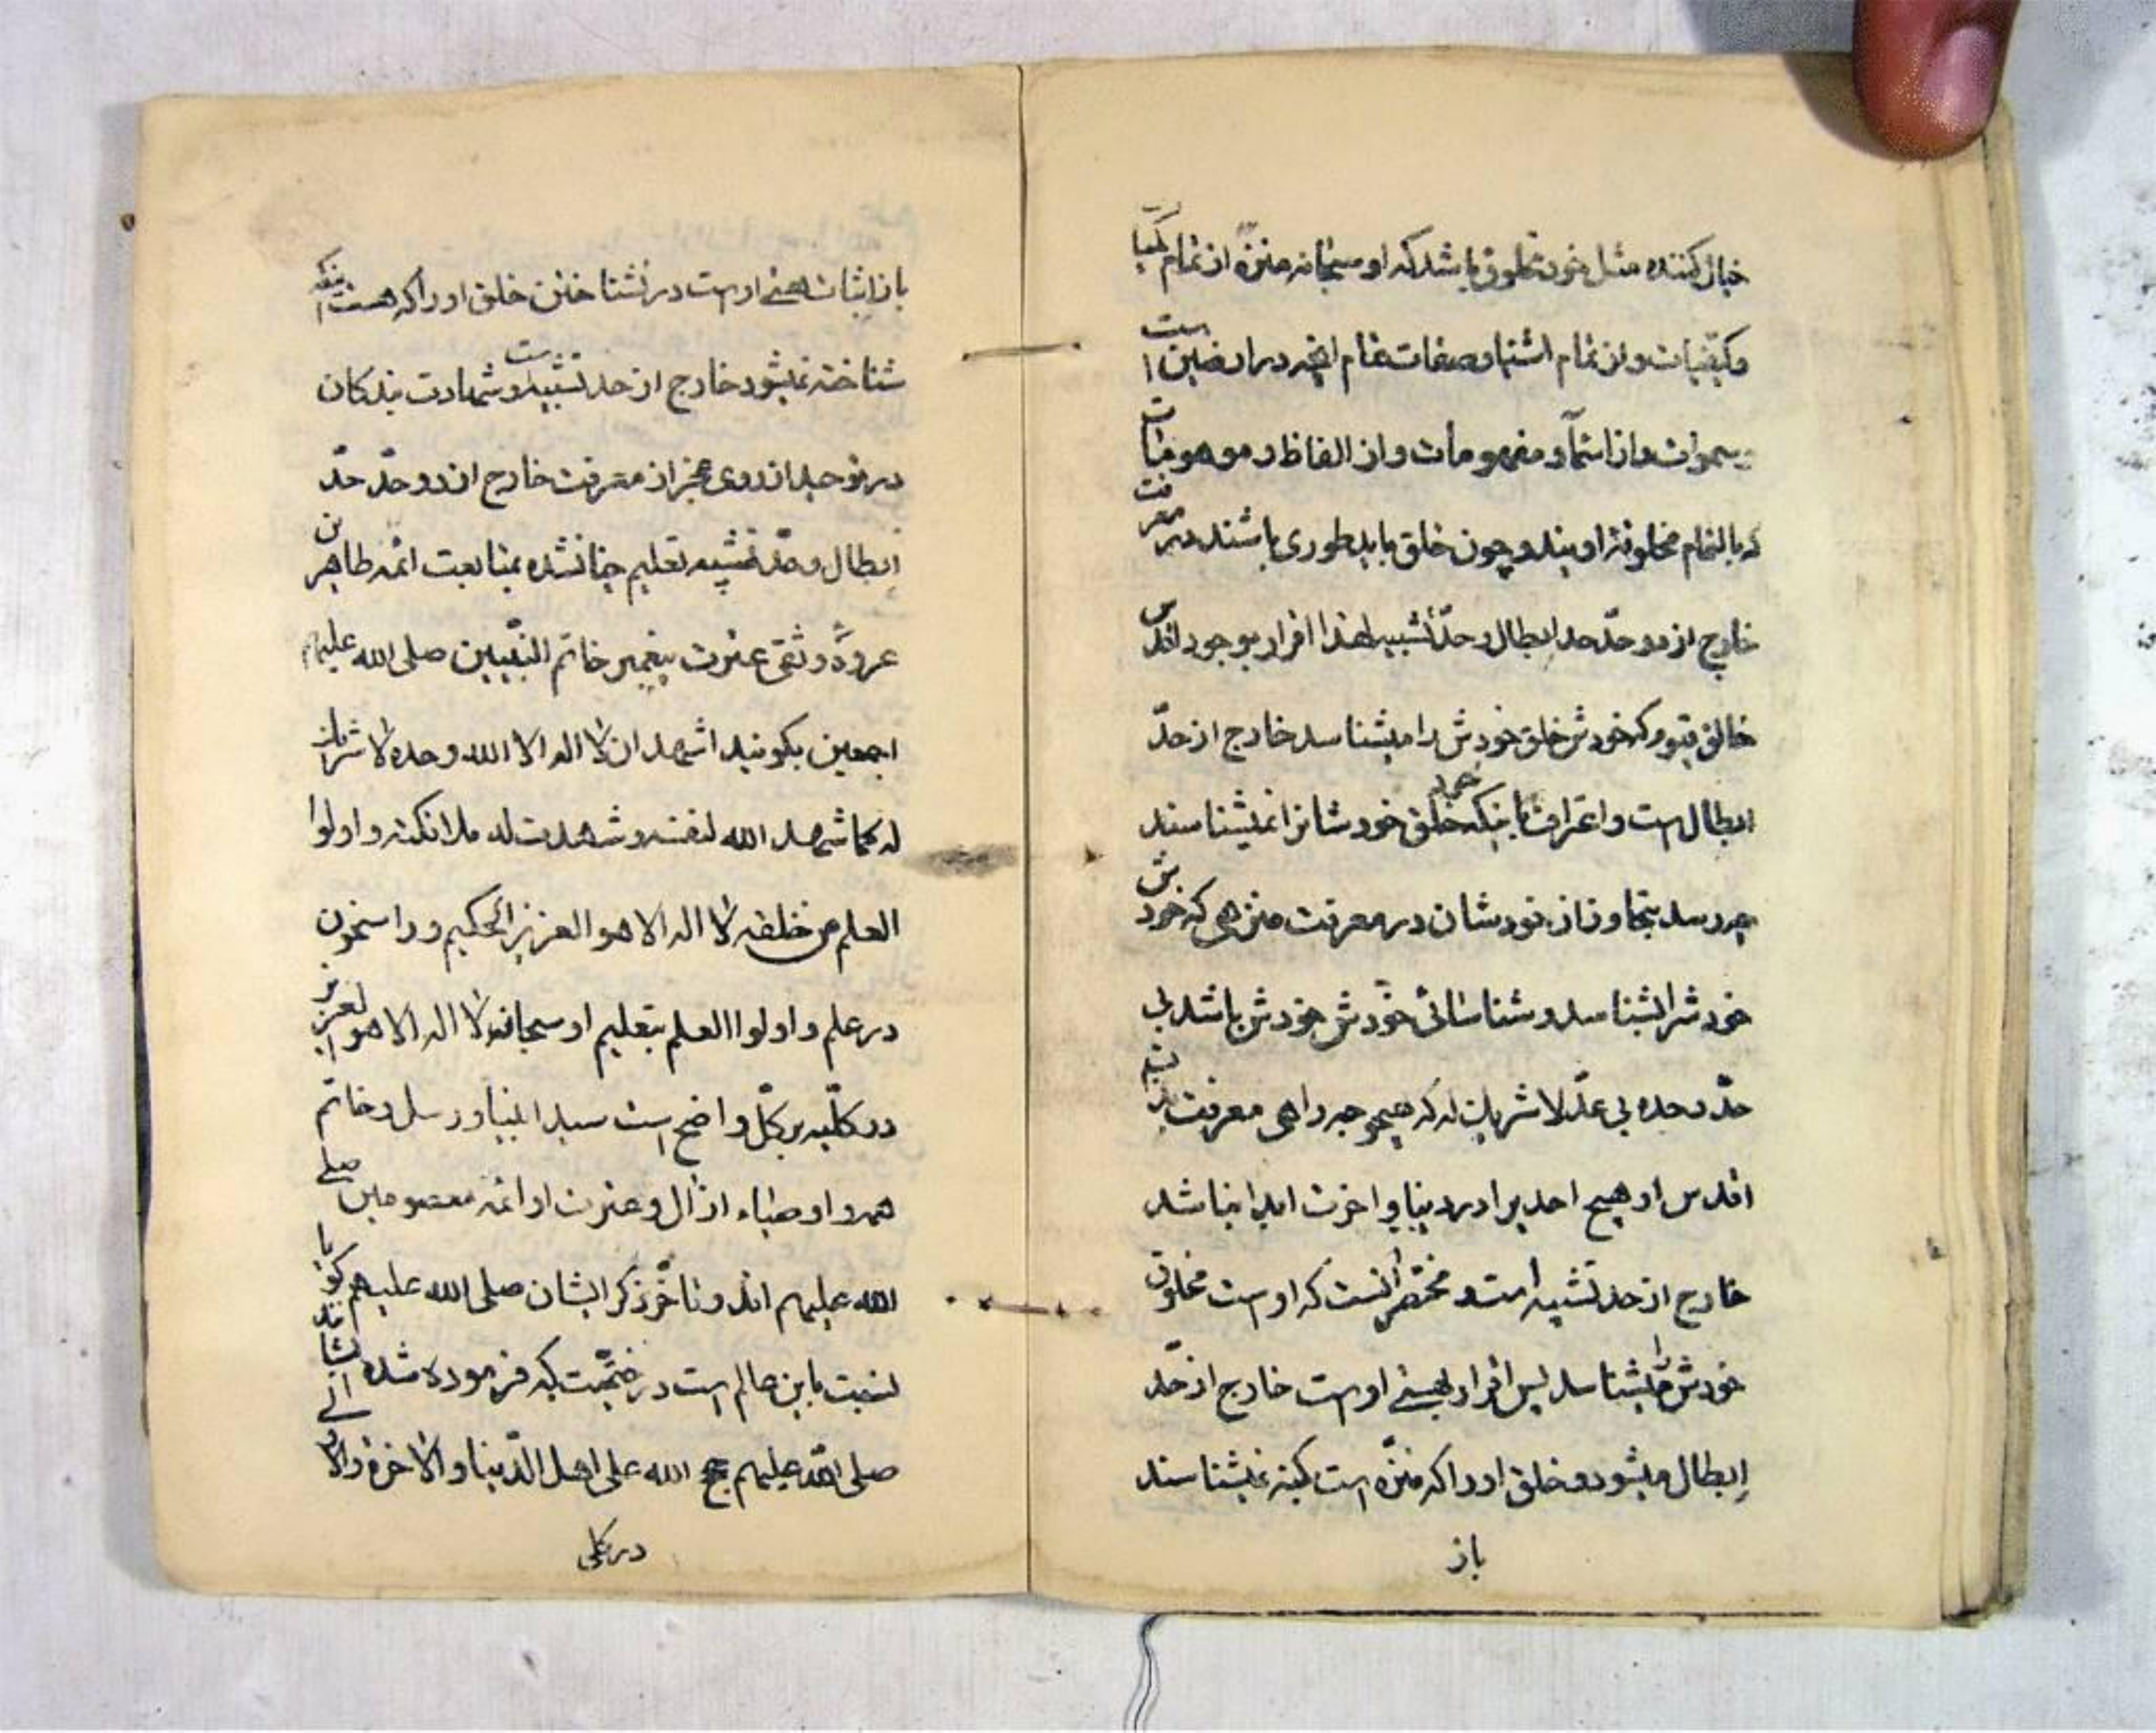 خیال کننده مثل خود مخلوق باشد که او سبحانه منزه از تمام کمیات
و کیفیات و از تمام اشیا و صفات تمام آنچه در ارضین است
و سموات و از اسمآء و مفهومات و از الفاظ و موهومات
که بالتمام مخلوقهٔ اویند و چون خلق باید طوری باشند در معرفت
خارج از دو حدّ حد ابطال و حدّ تشبیه لهذا اقرار بوجود اقدس
خالق قیوم که خودش خلق خودش را میشناسد خارج از حدّ
ابطال است و اعتراف باینکه خلق خودشانرا نمیشناسند
چه رسد بتجاوز از خودشان در معرفت منزهی که خودش
خودش را بشناسد و شناسائی خودش خودش باشد بی
حدّ وحده بی عدّ لا شریک له که هیچوجه راهی معرفت بذات
اقدس او هیچ احدیرا در دنیا و اخرت ابدا نباشد
خارج از حد تشبیه است و مختصر آنست که اوست مخلوق
خودش را میشناسد پس اقرار بهستی اوست خارج از حدّ
ابطال میشود و خلق او را که منزّه است کنه نمیشناسند
باز
باز اثبات هستی اوست در نشناختن خلق او را که هست اینکه
شناخته نمیشود خارج از حد تشبیه است و شهادت بندگان
در توحید از روی عجز از معرفت خارج از دو حدّ حدّ
ابطال و حدّ تشبیه تعلیم چنانشده بمتابعت ائمه طاهرین
عروة وثقی عترت پیغمبر خاتم النّبیین صلی الله علیهم
اجمعین بکویند اشهد ان لا اله الا الله وحده لا شریک
له کما شهد الله لنفسه و شهدت له ملائکته و اولوا
العلم من خلقه لا اله الا هو العزیز الحکیم و راسخون
در علم و اولوا العلم بتعلیم او سبحانه لا اله الا هو العزیز
در کلّیه بر کلّ واضح است سید انبیا و رسل و خاتم
همه و اوصیاء از آل و عترت او ائمه معصومین صلی
الله علیهم اند و تاخّر ذکر ایشان صلی الله علیهم
نسبت باین عالم است در ختمیّت که فرموده شده
صلی الله علیهم حجج الله علی اهل الدّنیا و الاخرة و الاولی
در کلی